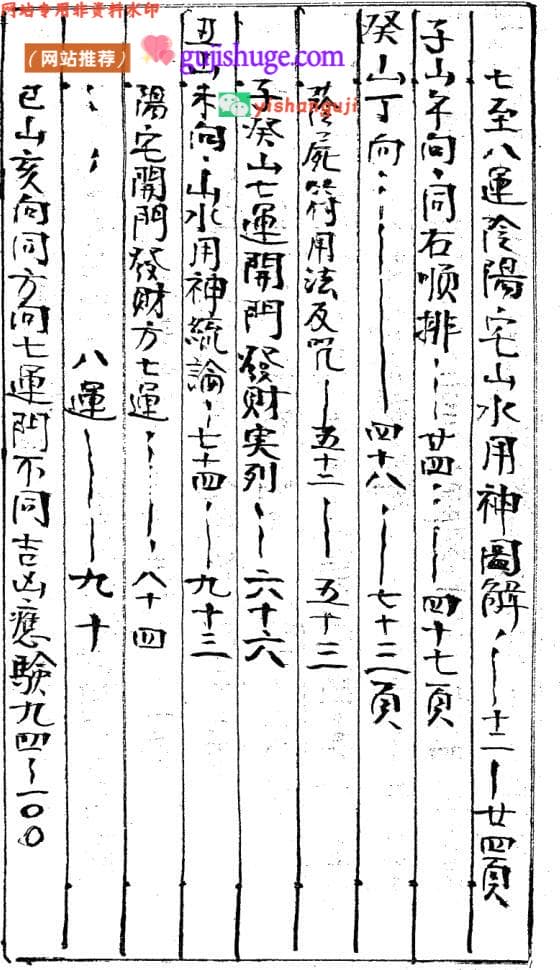 网站专用非资料水印
(网站推荐)
gujishuge.com
yishanguji
七至八運陰陽宅山水用神圖解 十二 廿四頁
子山午向·同右順排 廿四 四十七頁
癸山丁向 四十八 七十三頁
屍符用法反咒 五十二 五十三
子癸山七運開門發財実列 六十六
丑山未向·山水用神統論 七十四 九十三
陽宅開門發財方七運 八十四
〃 八運 九十
巳山亥向同方向七運門不同吉凶應驗九四~一〇〇